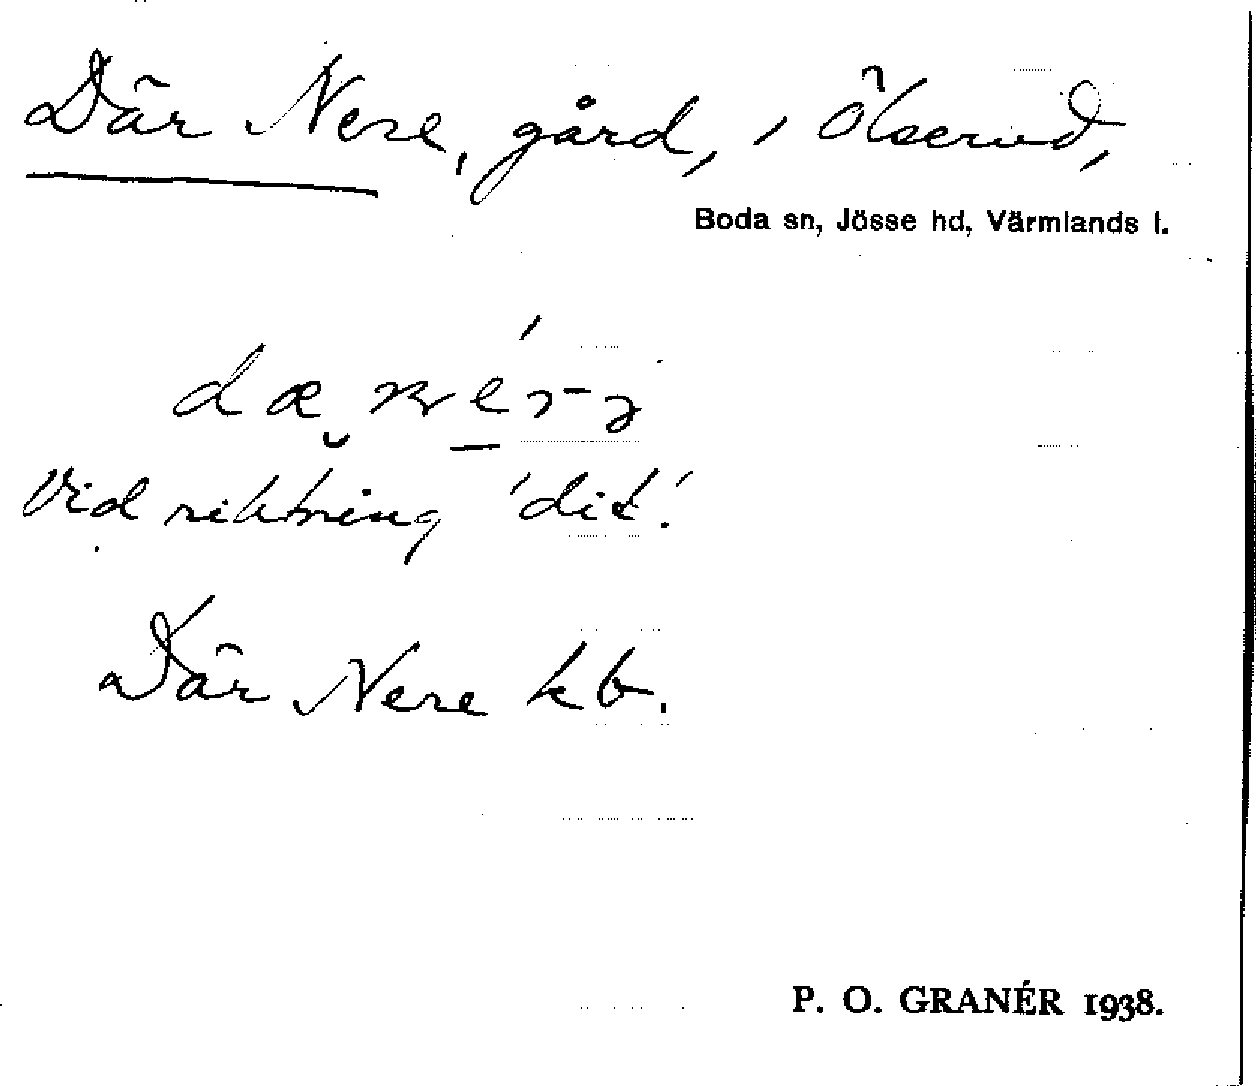 Där Nere, gård, i Ölserud,
Boda sn, Jösse hd, Värmlands l.
Vid riktning 'dit'.
Där Nere kb.
P. O. GRANÉR 1938.